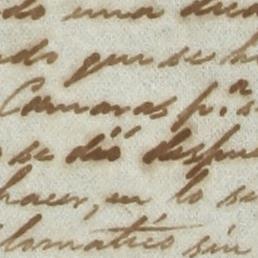 do una
do que se
Camaras p.ª
se dió despu
hacer, en lo se
lomatico sin